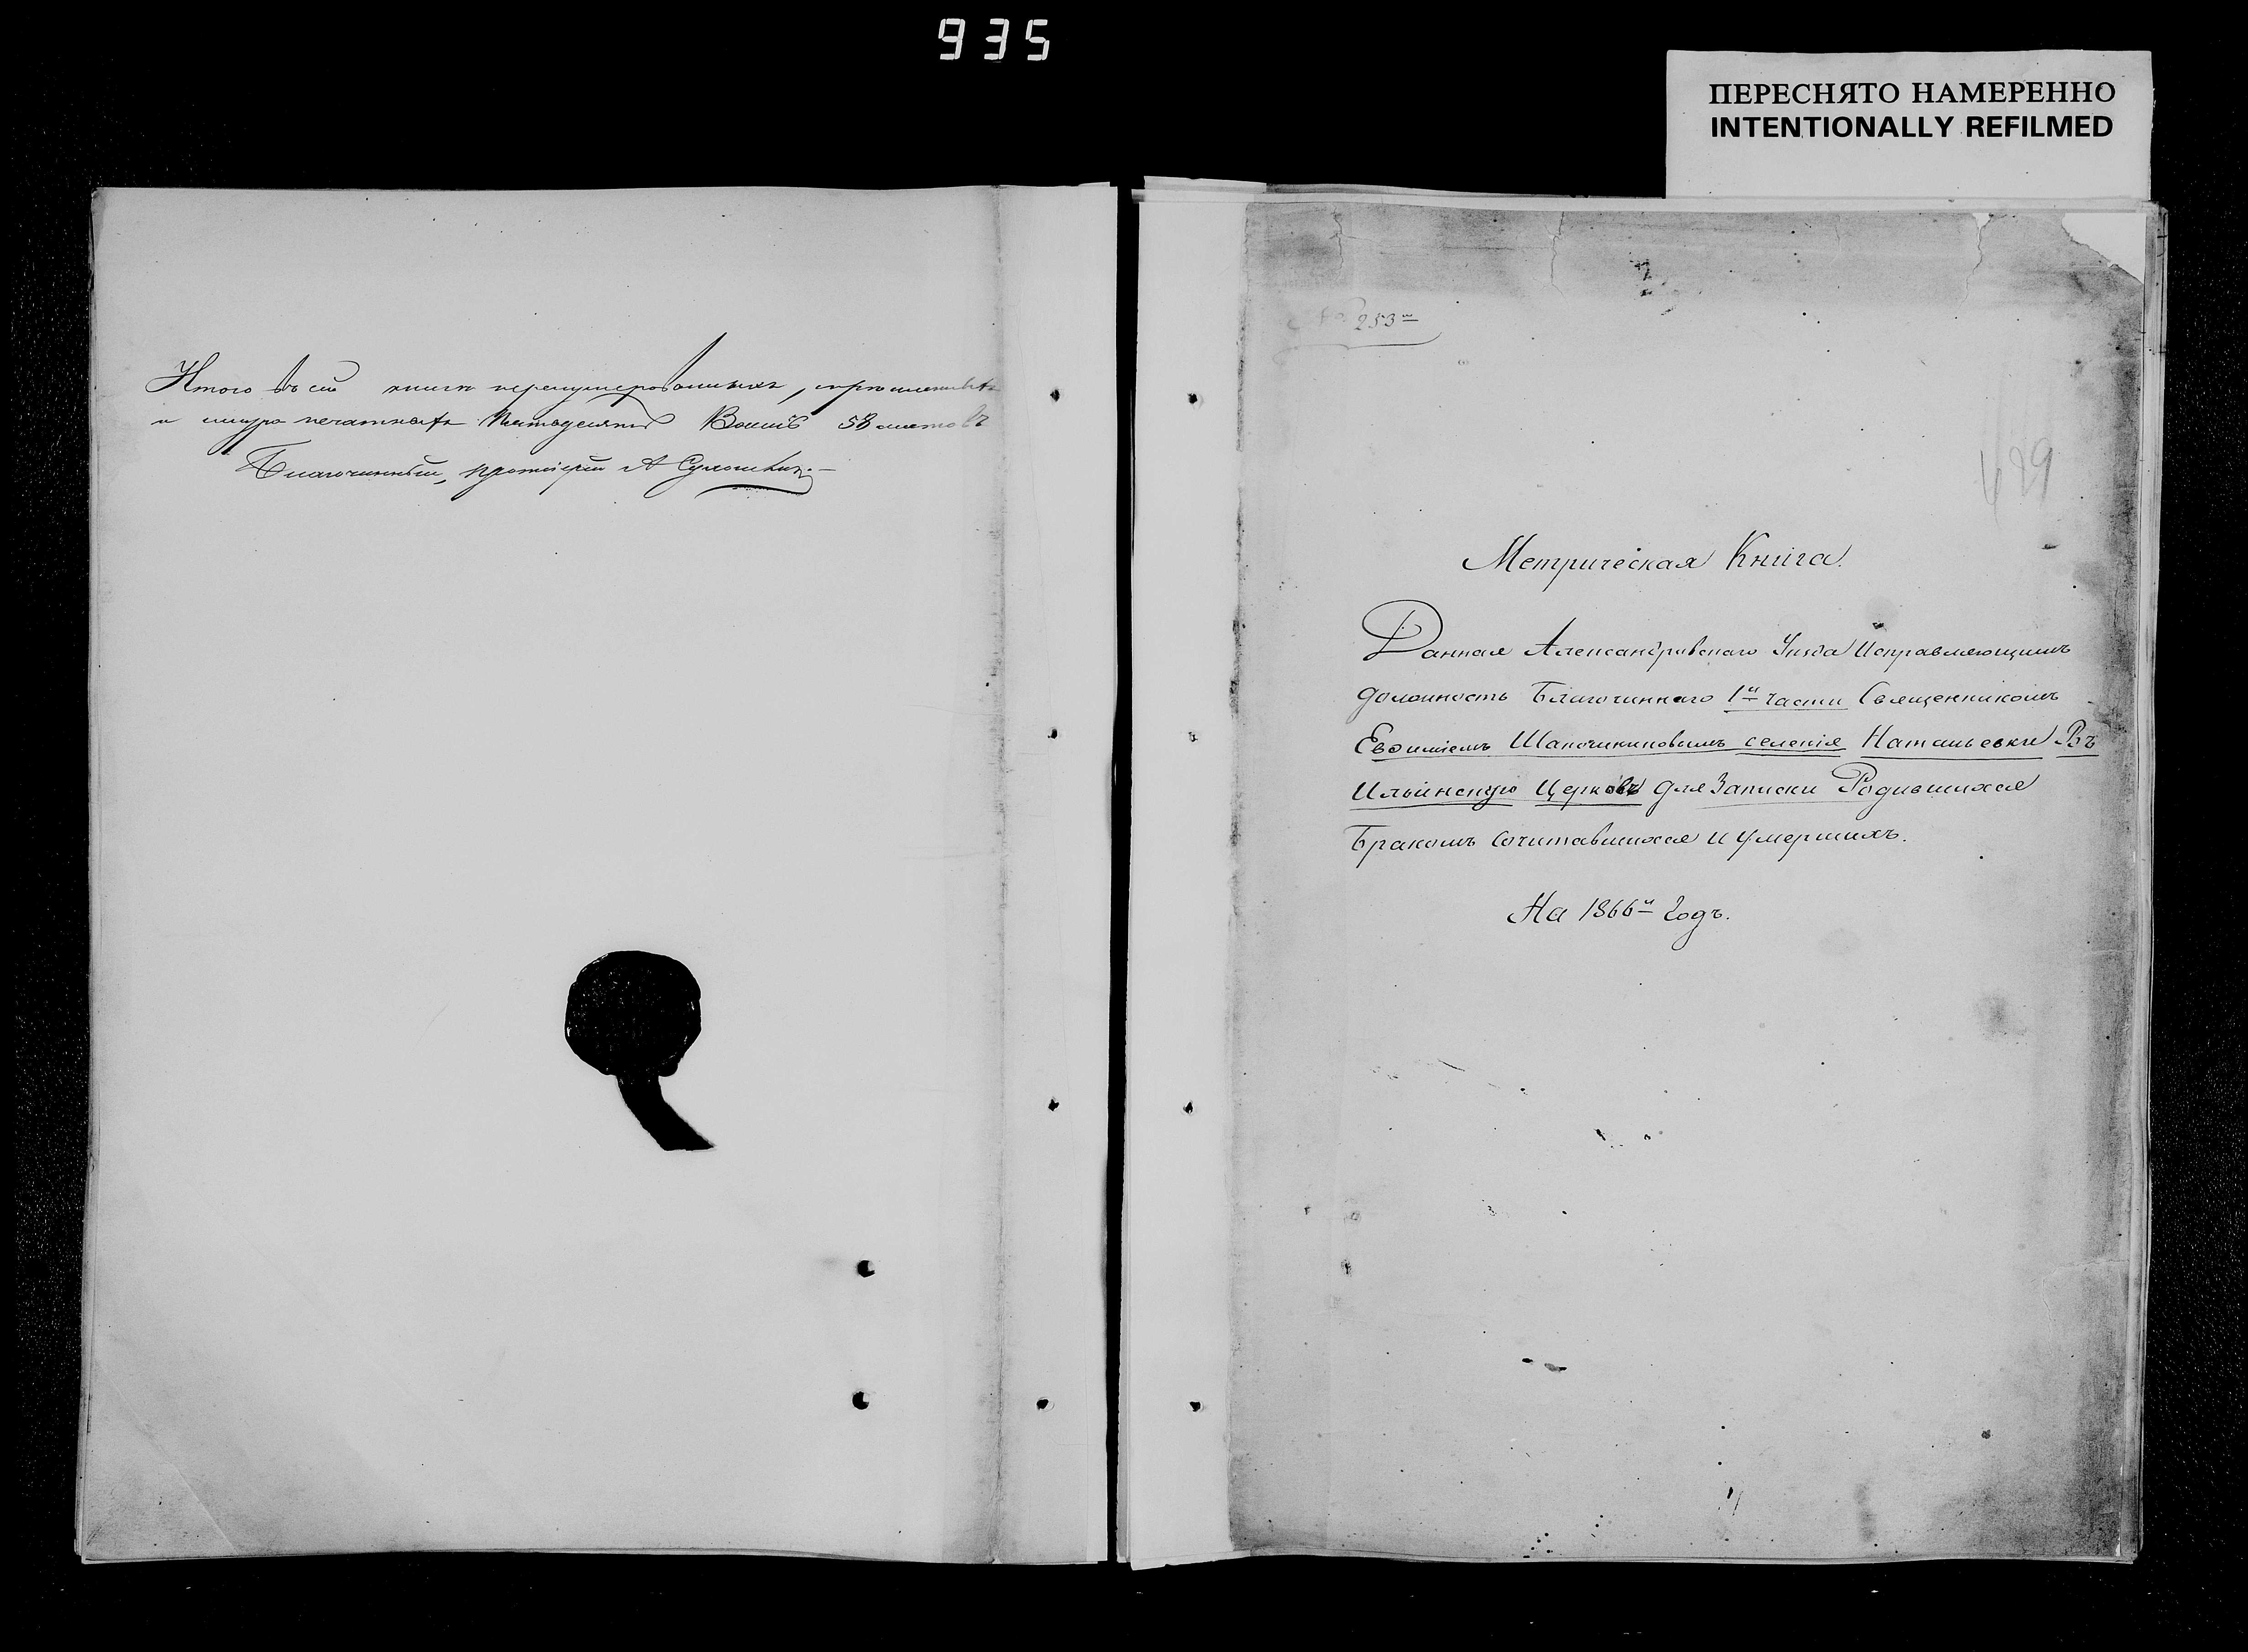 935
ПЕРЕСНЯТО НАМЕРЕННО
INTENTIONALLY REFILMED
Итого въ сей книгѣ перенумерованныхъ,
и шнуро печатныхъ Пятьдесятъ Восмь 58 листовъ
Благочинный, протоіерей А
253
429
Метрическая Книга.
Данная Александровскаго Уѣзда Исправляющимъ
должность Благочиннаго 1й части Священникомъ
Евѳиміемъ селенія Натальевки Въ
Ильинскую Церковь для Записки Родившихся
Бракомъ Сочитавшихся и Умершихъ.
На 1866й Годъ.